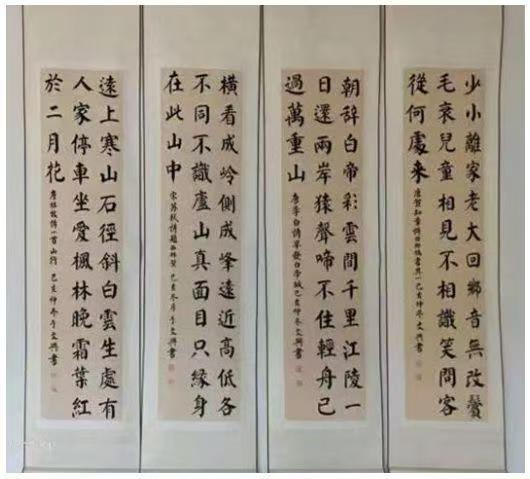 少小離家老大回鄉音無改鬢
毛衰兒童相見不相識笑問客
從何處来
唐賀知章詩回鄉偶書其一己亥仲冬文興書
朝辞白帝彩雲間千里江陵一
日還兩岸猿聲啼不住輕舟已
過萬重山
唐李白詩早發白帝城己亥仲冬文興書
橫看成岭側成峰遠近高低各
不同不識廬山真面目只緣身
在此山中
宋苏軾詩題西林壁己亥冬月于文興書
遠上寒山石徑斜白雲生處有
人家停車坐愛楓林晚霜葉紅
於二月花
唐杜牧詩一首山行己亥仲冬于文興書